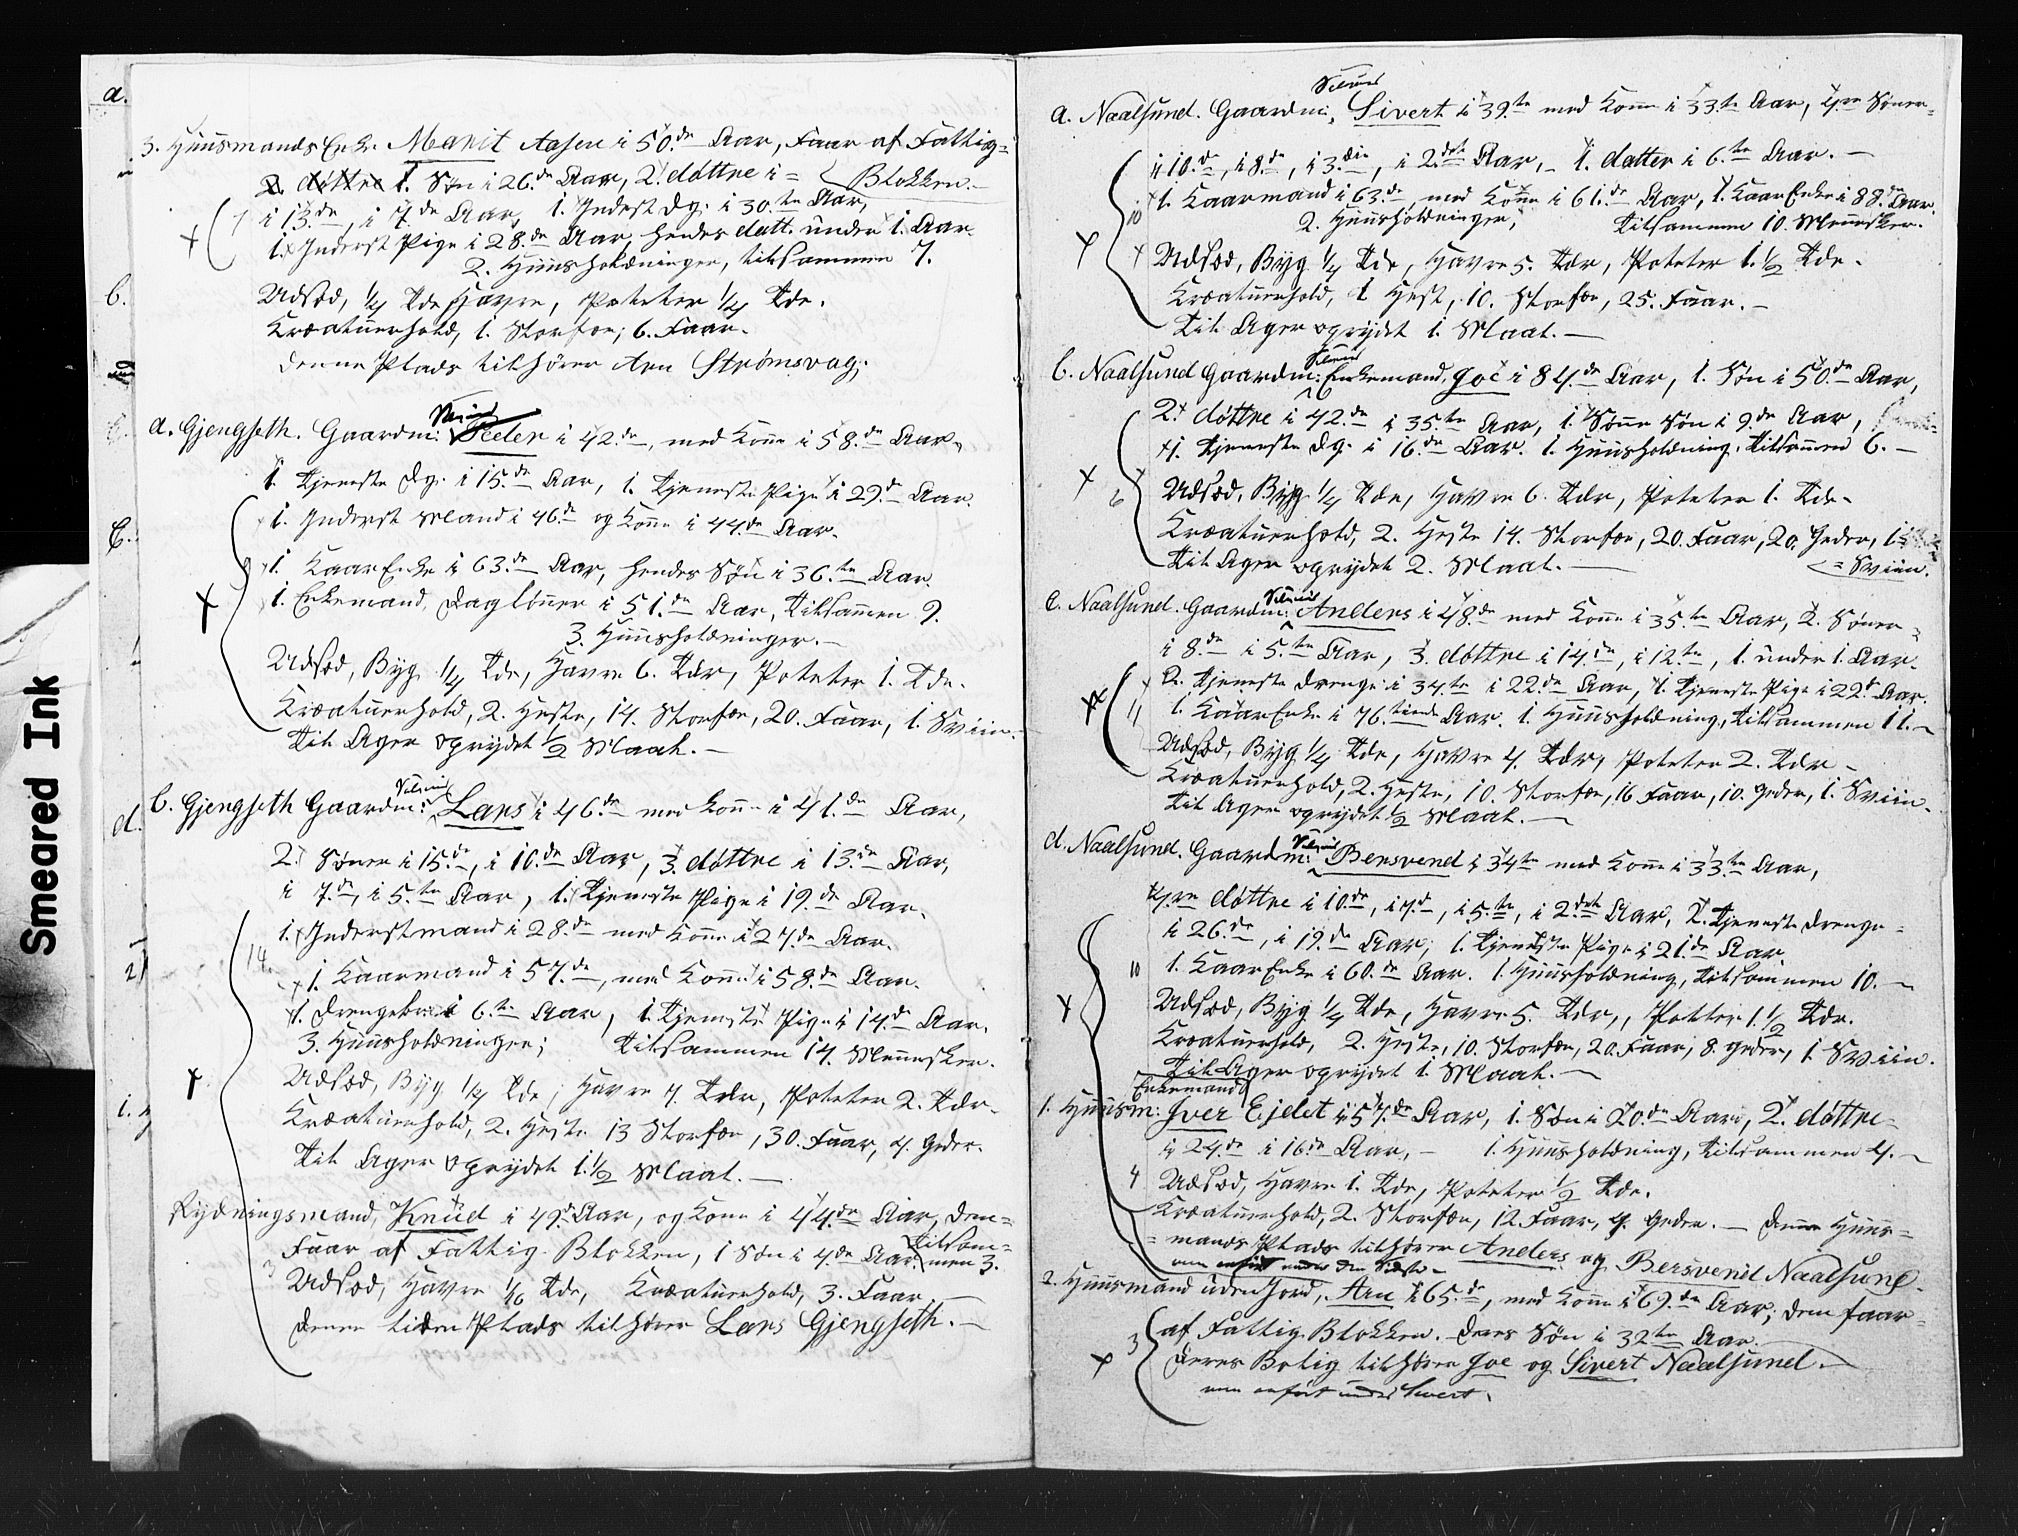 a.
3. Huusmands Enke Marit Aasen i 50.de Aar, Faar af Fattig=
2. døttre 1. Søn i 26.de Aar, 2. døttre i = Blokken.
i 13.de, i 7.de Aar, 1. Inderst Dg. i 30.te Aar,
1. Inderst Pige i 28.de Aar, hendes datt. under 1. Aar.
7
2. Huusholdninger, tilsammen 7.
b.
Udsæd, 1/4 Tde Havre, Poteter 1/4 Tde.
Kreaturhold, 1. Storfæ, 6. Faar.
denne Plads tilhører Arn Strømsvag.
Selveier
a. Gjengseth. Gaardm: Peeter i 42.de, med Kone i 58.de Aar,
1. Tjeneste Dg. i 15.de Aar, 1. Tjeneste Pige i 29.de Aar.
1. Inderst Mand i 46.de og Kone i 44.de Aar.
9
1. Kaar Enke i 63.de Aar, hendes Søn i 36.te Aar.
1. Enkemand, Dagløner i 51.de Aar, Tilsammen 9.
3. Huusholdninger.
Udsæd, Byg 1/4 Tde, Havre 6. Tdr, Poteter 1. Tde.
Kreaturhold, 2. Heste, 14. Storfæ, 20. Faar, 1. Sviin.
Til Ager oprydet 1/2 Maal.
Selveier
b. Gjengseth Gaardm: Lars i 46.de med Kone i 41.de Aar,
d.
2. Sønner i 15.de, i 10.de Aar, 3. døttre i 13.de Aar,
i 7.de, i 5.te Aar, 1. Tjeneste Pige i 19.de Aar.
1. Inderstmand i 28.de med Kone i 27.de Aar.
14.
1. Kaarmand i 57.de, med Kone i 58.de Aar.
1. Drengebarn i 6.te Aar, 1. Tjeneste Pige i 14.de Aar.
3. Huusholdninger; Tilsammen 14. Mennesker.
Udsæd, Byg 1/4 Tde, Havre 7. Tdr, Poteter 2. Tdr.
Kreaturhold, 2. Heste 13 Storfæ, 30. Faar, 4. Geder.
Til Ager oprydet 1.1/2 Maal.
Rydningsmand, Knud i 49.de Aar, og Kone i 44.de Aar, dem=
Faar af Fattig Blokken, 1 Søn i 4.de Aar. tilsam=
men 3.
3
Udsæd, Havre 1/6 Tde, Kreaturhold, 3. Faar.
denne liden Plads tilhører Lars Gjengseth.
Smeared Ink
Selveier
a. Naalsund. Gaardm. Sivert i 39.te med Kone i 33.te Aar, 4.re Sønner=
i 10.de, i 8.de, i 3.die, i 2.det Aar, 1. datter i 6.te Aar.
1. Kaarmand i 63.de, med Kone i 61.de Aar, 1. Kaar Enke i 88.de Aar.
10
2. Huusholdninger, tilsammen 10. Mennesker.
Udsæd, Byg 1/4 Tde, Havre 5. Tdr, Poteter 1.1/2 Tde.
Kreaturhold, 1 Hest, 10. Storfæ, 25. Faar.
Til Ager oprydet 1. Maal.
Selveier
b. Naalsund Gaardm: Enkemand, Joe i 84.de Aar, 1. Søn i 50.de Aar,
2. døttre i 42.de i 35.te Aar, 1. Sønne Søn i 9.de Aar,
1. Tjeneste Dg. i 16.de Aar. 1. Huusholdning, Tilsammen 6.
6
Udsæd, Byg 1/4 Tde, Havre 6. Tdr, Poteter 1. Tde.
Kreaturhold, 2. Heste 14. Storfæ, 20. Faar, 20. Geder, 1
= Sviin.
Til Ager oprydet 2. Maal.
Selveier
c. Naalsund. Gaardm: Anders i 48.de med Kone i 35.te Aar, 2. Sønner=
i 8.de i 5.te Aar, 3. døttre i 14.de, i 12.te, 1. under 1. Aar.
2. Tjeneste Drenge i 34.te i 22.de Aar, 1. Tjeneste Pige i 22.de Aar.
11
1. Kaar Enke i 76.tiende Aar. 1. Huusholdning, tilsammen 11.
Udsæd, Byg 1/4 Tde, Havre 4. Tdr, Poteter 2. Tdr
Kreaturhold, 2. Heste, 10. Storfæ, 16 Faar, 10. Geder, 1. Sviin.
Til Ager oprydet 1/2 Maal.
Selveier
d. Naalsund. Gaardm: Bersvend i 34te med Kone i 33.te Aar,
4.re døttre i 10.de, i 7.de, i 5.te, i 2.det Aar, 2. Tjeneste Drenge=
i 26.de, i 19.de Aar, 1. Tjeneste Pige i 21.de Aar.
10
1. Kaar Enke i 60.de Aar. 1. Huusholdning, Tilsammen 10.
Udsæd, Byg 1/4 Tde, Havre 5. Tdr, Poteter 1.1/2 Tde.
Kreaturhold, 2. Heste, 10. Storfæ, 20. Faar, 8. Geder, 1. Sviin.
Til Ager oprydet 1. Maal.
Enkemand
1. Huusm: Iver Ejdet i 57.de Aar, 1. Søn i 20.de Aar, 2. døttre=
i 24.de i 16.de Aar, 1. Huusholdning, tilsammen 4.
4
Udsæd, Havre 1. Tde, Poteter 1/2 Tde.
Kreaturhold, 2. Storfæ, 12 Faar, 4. Geder. Denne Huus=
= mands Plads tilhører Anders og Bersvend Naalsund.
nu anført under den Sidste
2. Huusmand uden Jord, Arn i 65.de, med Kone i 69.de Aar; dem faar=
3
af Fattig Blokken. deres Søn i 32te Aar.
deres Bolig tilhører Joe og Sivert Naalsund.
nu anført under Sivert.